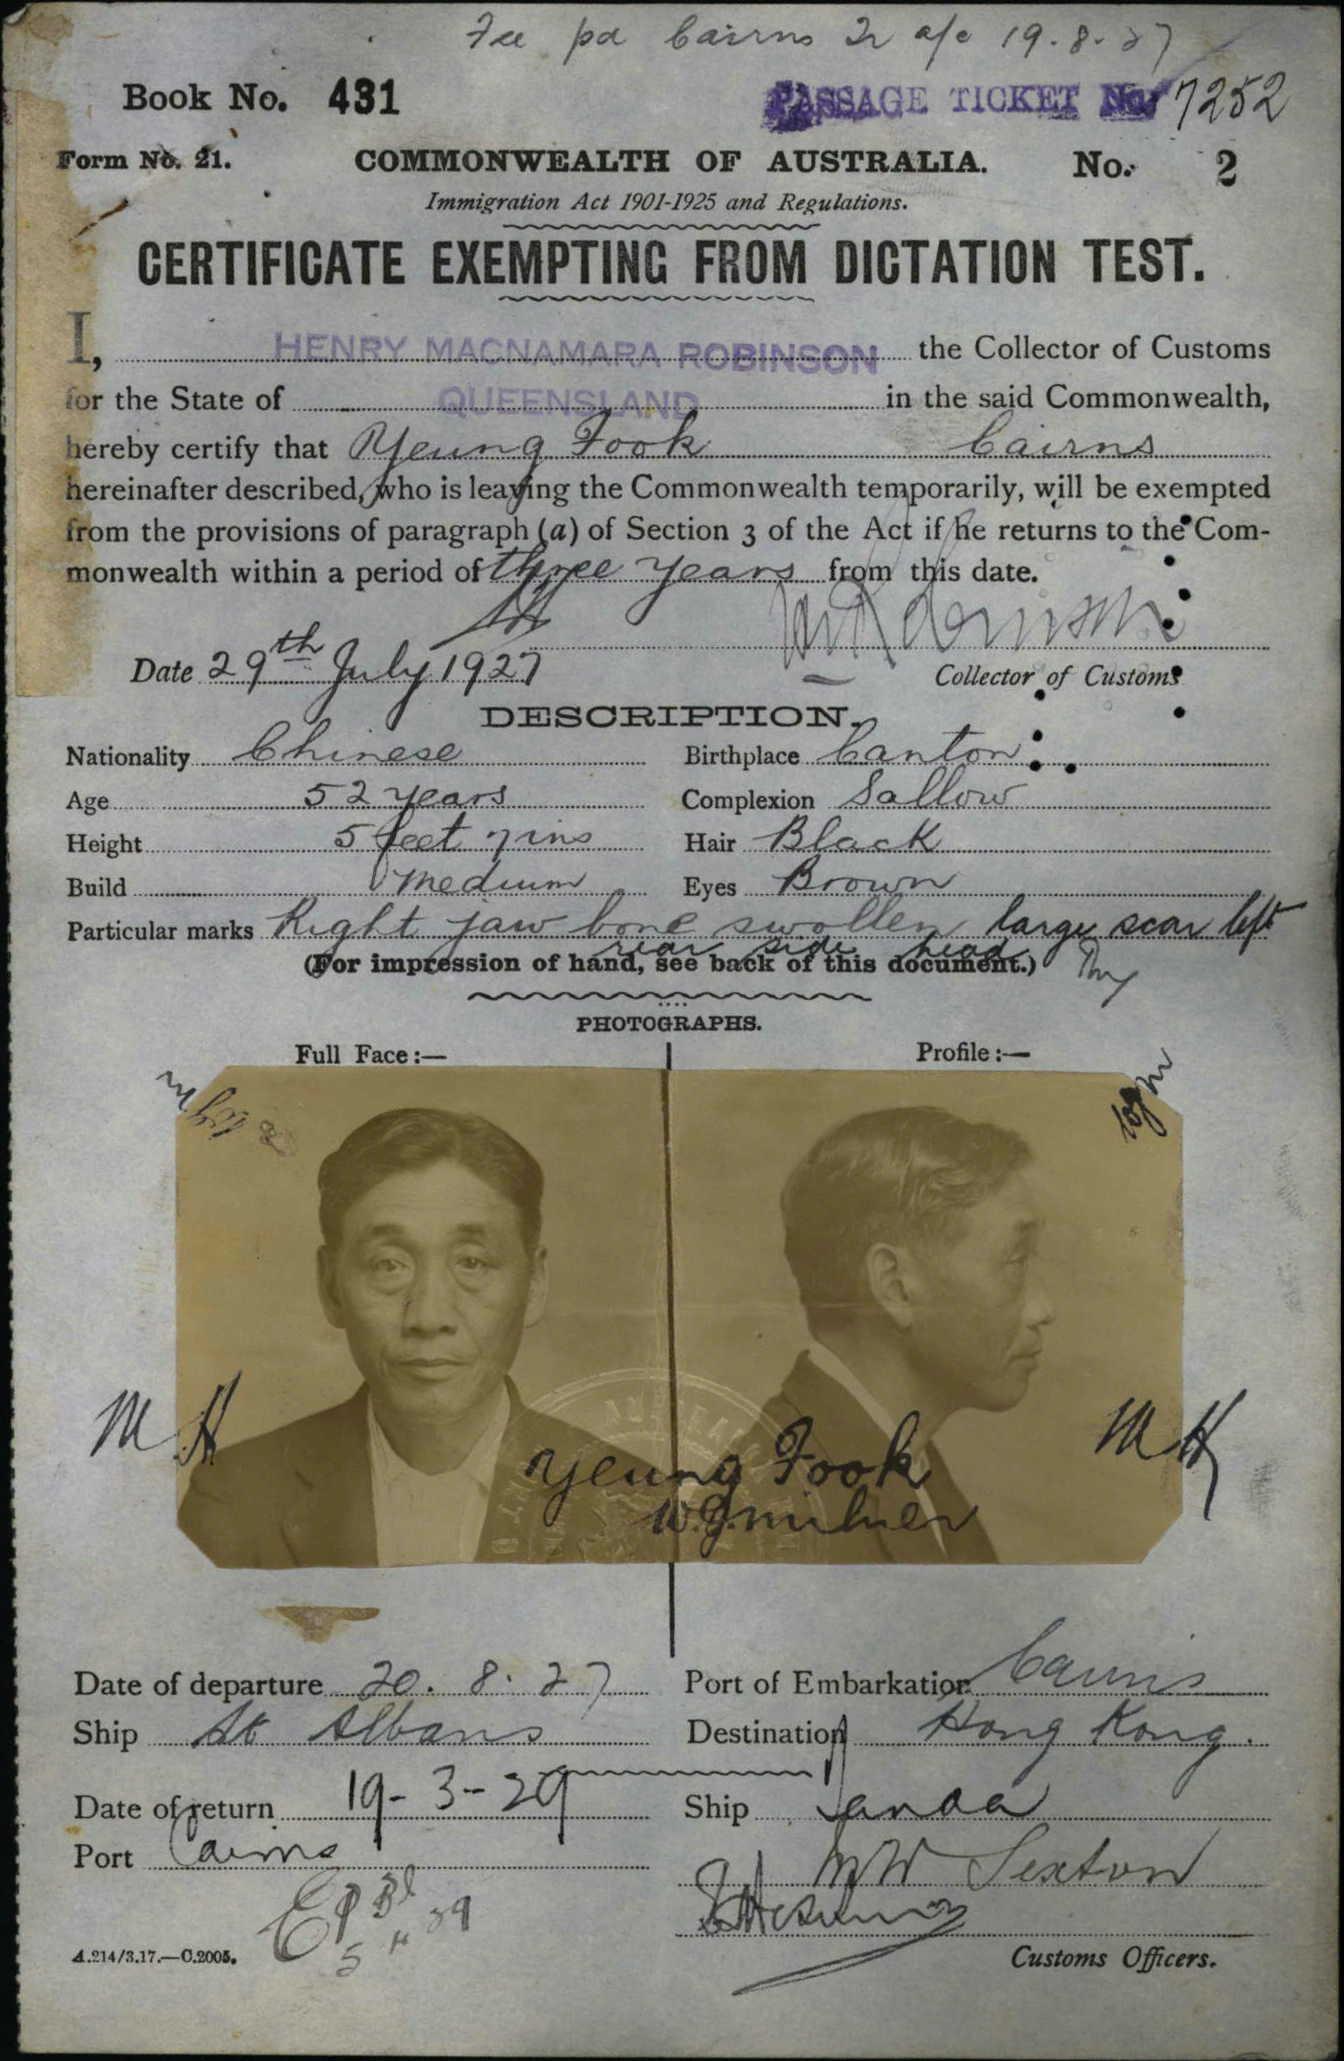 Fee pd Cairns a/c 19.8.27
Book No. 431 PASSAGE TICKET No. 7252
Form No. 21. COMMONWEALTH OF AUSTRALIA. No. 2
Immigration Act 1901-1925 and Regulations.
CERTIFICATE EXEMPTING FROM DICTATION TEST.
I, HENRY MACNAMARA ROBINSON the Collector of Customs
for the State of QUEENSLAND in the said Commonwealth,
hereby certify that Yeung Fook Cairns
hereinafter described, who is leaving the Commonwealth temporarily, will be exempted
from the provisions of paragraph (a) of Section 3 of the Act if he returns to the Com-
monwealth within a period of three years from this date.
Date 29th July 1927 Collector of Customs
DESCRIPTION.
Nationality Chinese Birthplace Canton
Age 52 years Complexion Sallow
Height 5 feet 7 ins Hair Black
Build Medium Eyes Brown
Particular marks Right jaw bone swollen large scar left
rear side head
(For impression of hand, see back of this document.)
PHOTOGRAPHS.
Full Face:— Profile:—
M H M H
Yeung Fook
W.J. Milner
Date of departure 20.8.27 Port of Embarkation Cairns
Ship St Albans Destination Hong Kong.
Date of return 19-3-29 Ship Tanda
Port Cairns
Sexton
A.214/3.17.—C.2005. Customs Officers.